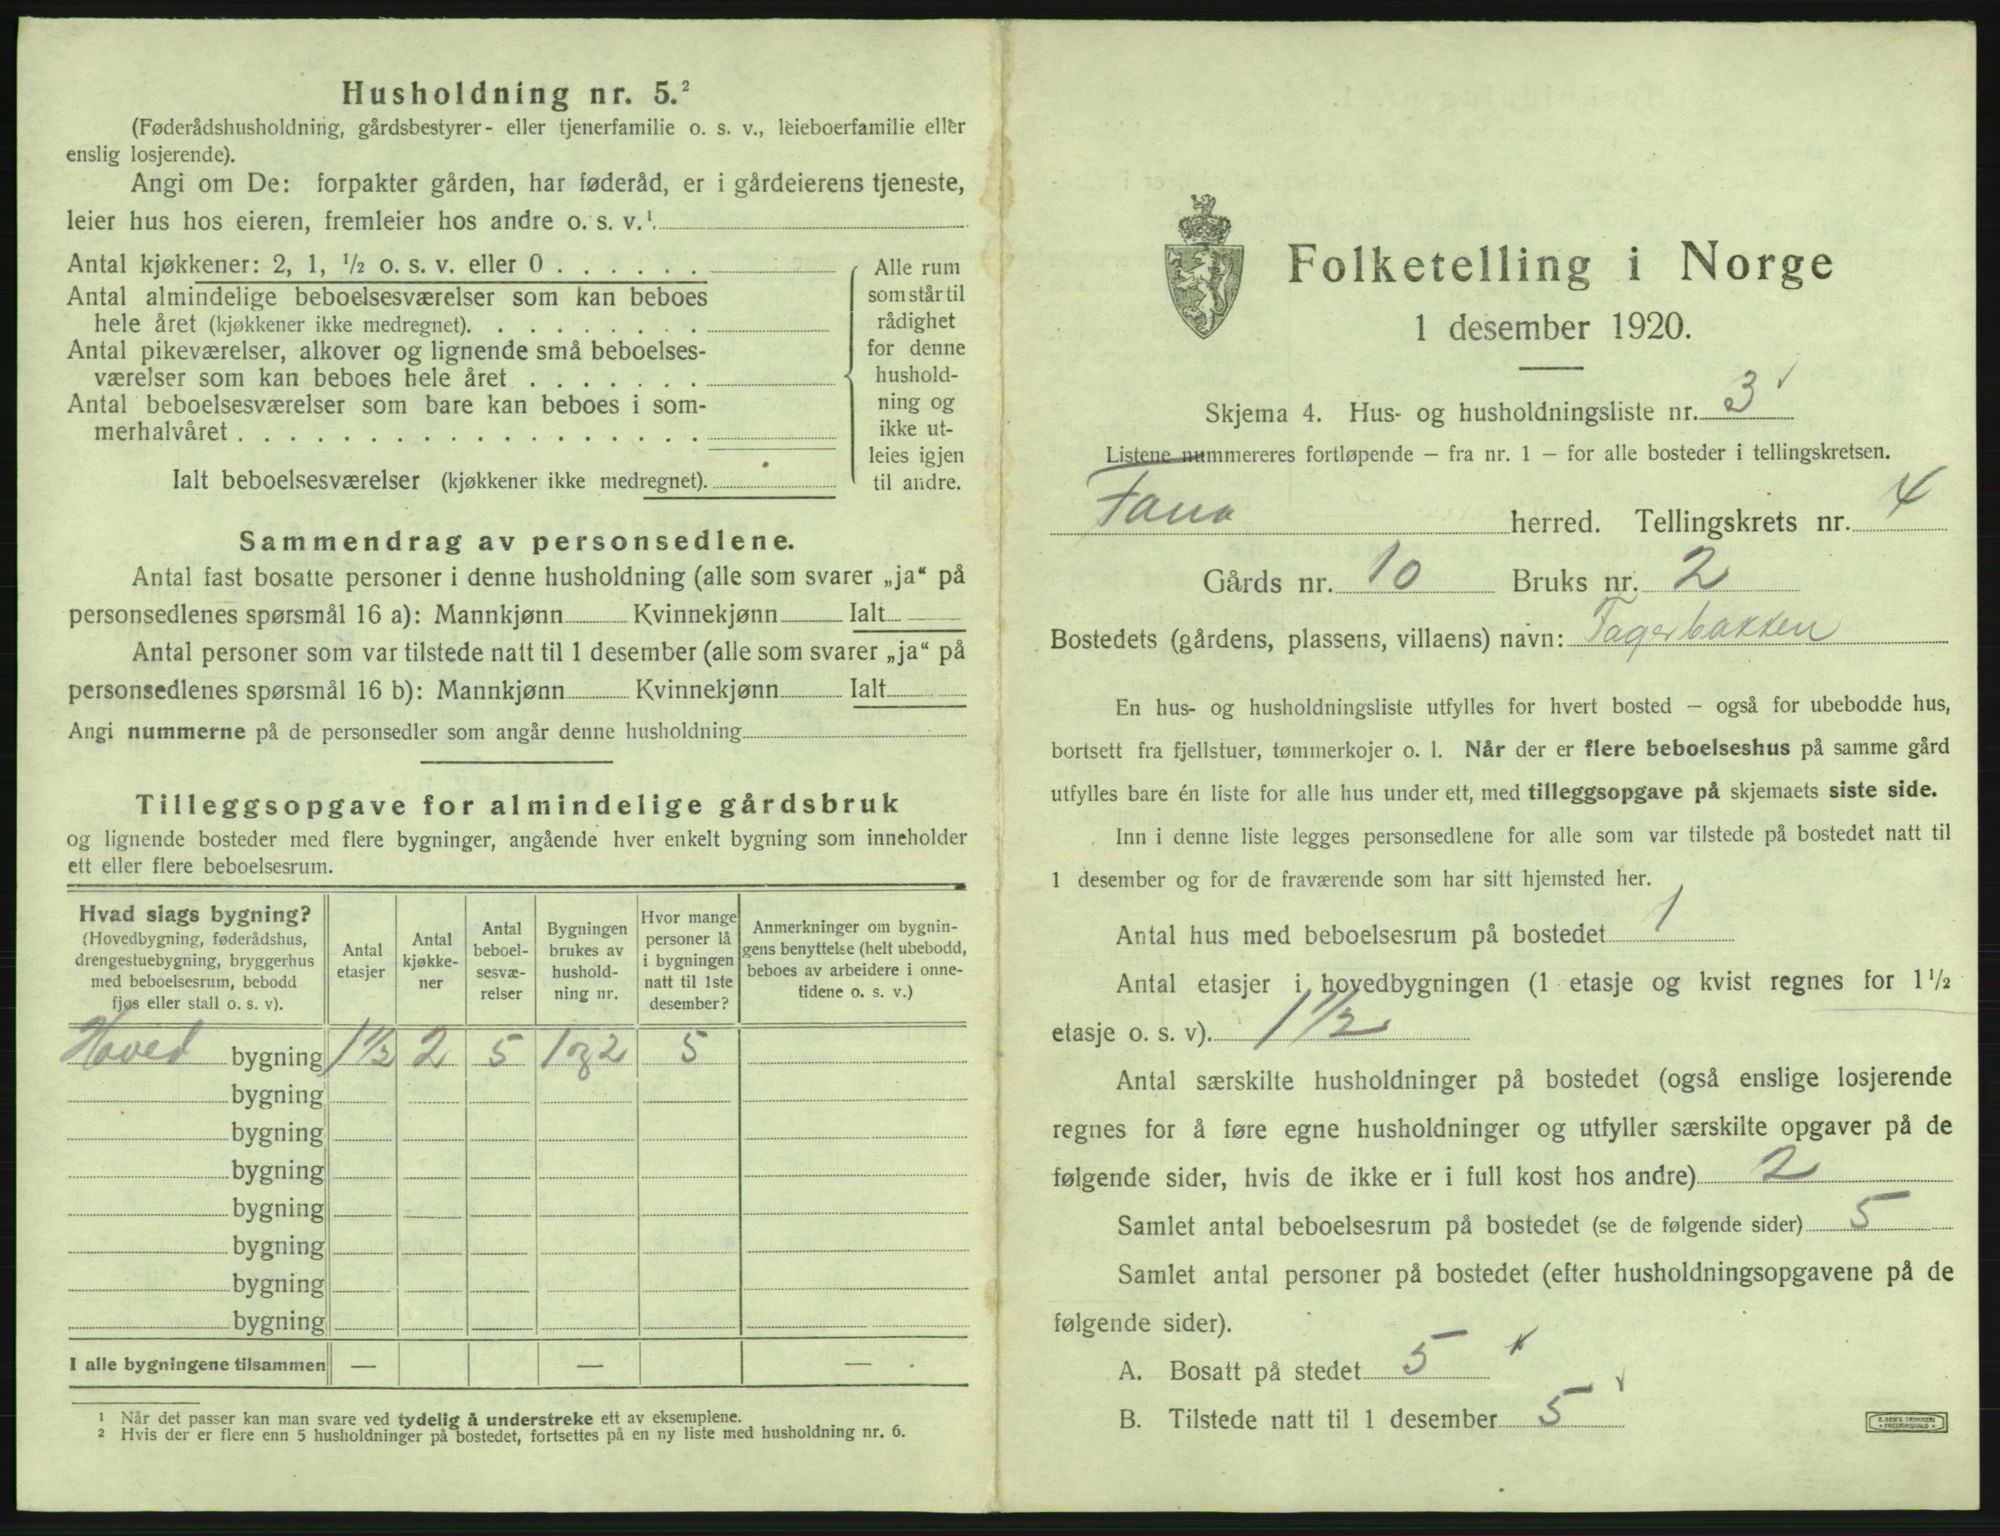 Husholdning nr. 5.²
(Føderådshusholdning, gårdsbestyrer- eller tjenerfamilie o. s. v., leieboerfamilie eller
enslig losjerende).
Angi om De: forpakter gården, har føderåd, er i gårdeierens tjeneste,
leier hus hos eieren, fremleier hos andre o. s. v.¹
Antal kjøkkener: 2, 1, ½ o. s. v. eller 0 . . . . . .
Antal almindelige beboelsesværelser som kan beboes
hele året (kjøkkener ikke medregnet). . . . . . . . .
Antal pikeværelser, alkover og lignende små beboelses-
værelser som kan beboes hele året . . . . . . .
Antal beboelsesværelser som bare kan beboes i som-
merhalvåret . . . . . . . . . . . . . . . . . .
Ialt beboelsesværelser (kjøkkener ikke medregnet).
Alle rum
som står til
rådighet
for denne
hushold-
ning og
ikke ut-
leies igjen
til andre.
Sammendrag av personsedlene.
Antal fast bosatte personer i denne husholdning (alle som svarer „ja“ på
personsedlenes spørsmål 16 a): Mannkjønn Kvinnekjønn Ialt
Antal personer som var tilstede natt til 1 desember (alle som svarer „ja“ på
personsedlenes spørsmål 16 b): Mannkjønn Kvinnekjønn Ialt
Angi nummerne på de personsedler som angår denne husholdning
Tilleggsopgave for almindelige gårdsbruk
og lignende bosteder med flere bygninger, angående hver enkelt bygning som inneholder
ett eller flere beboelsesrum.
Hvad slags bygning?
(Hovedbygning, føderådshus,
drengestuebygning, bryggerhus
med beboelsesrum, bebodd
fjøs eller stall o. s. v).
Antal
etasjer
Antal
kjøkke-
ner
Antal
beboel-
sesvæ-
relser
Bygningen
brukes av
hushold-
ning nr.
Hvor mange
personer lå
i bygningen
natt til 1ste
desember?
Anmerkninger om bygnin-
gens benyttelse (helt ubebodd,
beboes av arbeidere i onne-
tidene o. s. v.)
Hoved bygning 1½ 2 5 1 og 2 5
bygning
bygning
bygning
bygning
bygning
bygning
bygning
I alle bygningene tilsammen — — —
¹ Når det passer kan man svare ved tydelig å understreke ett av eksemplene.
² Hvis der er flere enn 5 husholdninger på bostedet, fortsettes på en ny liste med husholdning nr. 6.
Folketelling i Norge
1 desember 1920.
Skjema 4. Hus- og husholdningsliste nr. 3
Listene nummereres fortløpende – fra nr. 1 – for alle bosteder i tellingskretsen.
Fana herred. Tellingskrets nr. 4
Gårds nr. 10 Bruks nr. 2
Bostedets (gårdens, plassens, villaens) navn: Fagerbakken
En hus- og husholdningsliste utfylles for hvert bosted – også for ubebodde hus,
bortsett fra fjellstuer, tømmerkojer o. l. Når der er flere beboelseshus på samme gård
utfylles bare én liste for alle hus under ett, med tilleggsopgave på skjemaets siste side.
Inn i denne liste legges personsedlene for alle som var tilstede på bostedet natt til
1 desember og for de fraværende som har sitt hjemsted her.
Antal hus med beboelsesrum på bostedet 1
Antal etasjer i hovedbygningen (1 etasje og kvist regnes for 1½
etasje o. s. v). 1½
Antal særskilte husholdninger på bostedet (også enslige losjerende
regnes for å føre egne husholdninger og utfyller særskilte opgaver på de
følgende sider, hvis de ikke er i full kost hos andre) 2
Samlet antal beboelsesrum på bostedet (se de følgende sider) 5
Samlet antal personer på bostedet (efter husholdningsopgavene på de
følgende sider).
A. Bosatt på stedet 5
B. Tilstede natt til 1 desember 5
E. SEM'S TRYKKERI
FREDRIKSHALD